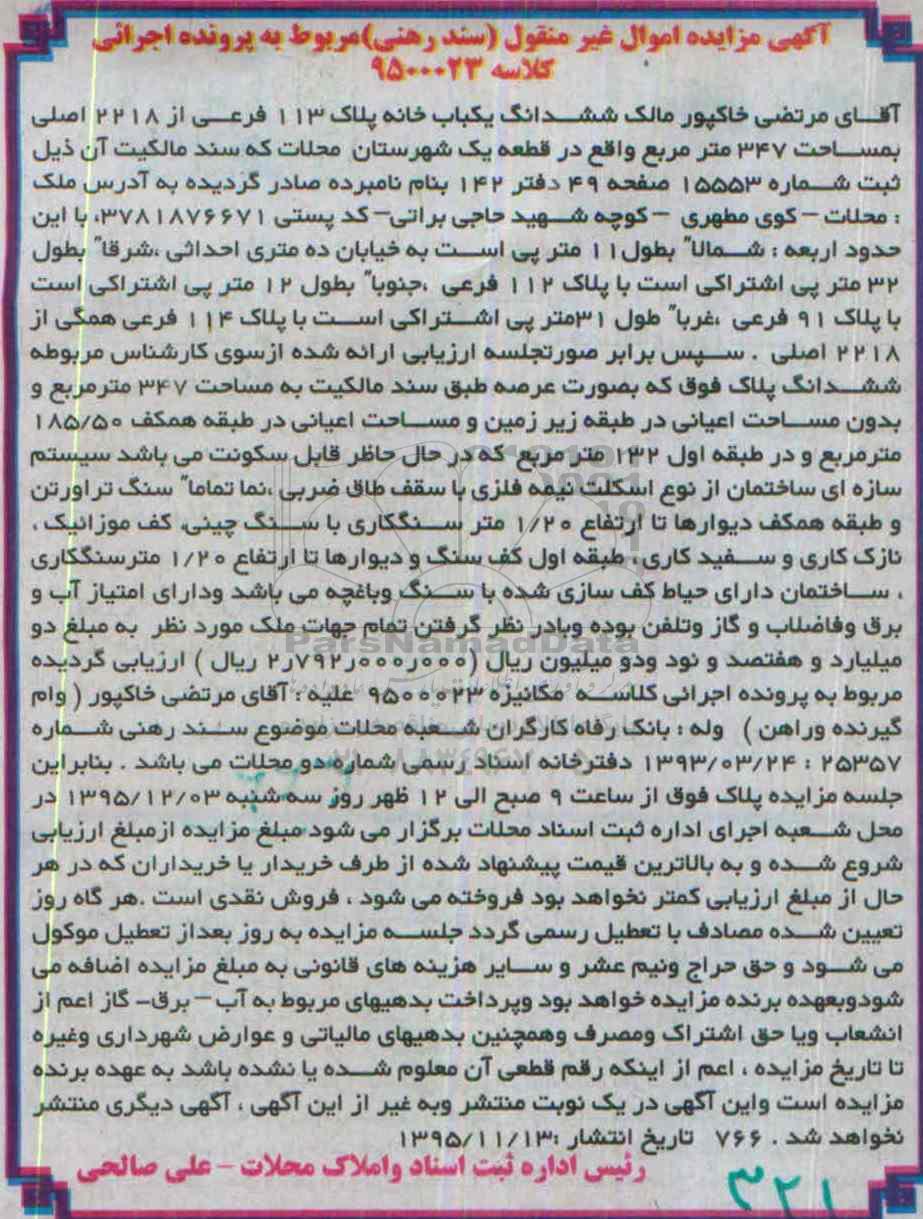 آگهی مزایده اموال غیر منقول (سند رهنی)مربوط به پرونده اجرائی
کلاسه ۹۵۰۰۰۲۳
آقای مرتضی خاکپور مالک ششدانگ یکباب خانه پلاک ۱۱۳ فرعی از ۲۲۱۸ اصلی
بمساحت ۳۴۷ متر مربع واقع در قطعه یک شهرستان محلات که سند مالکیت آن ذیل
ثبت شماره ۱۵۵۵۳ صفحه ۴۹ دفتر ۱۴۲ بنام نامبرده صادر گردیده به آدرس ملک
: محلات – کوی مطهری – کوچه شهید حاجی براتی– کد پستی ۳۷۸۱۸۷۶۶۷۱، با این
حدود اربعه : شمالا" بطول۱۱ متر پی است به خیابان ده متری احداثی ،شرقا" بطول
۳۲ متر پی اشتراکی است با پلاک ۱۱۲ فرعی ،جنوبا" بطول ۱۲ متر پی اشتراکی است
با پلاک ۹۱ فرعی ،غربا" طول ۳۱متر پی اشتراکی است با پلاک ۱۱۴ فرعی همگی از
۲۲۱۸ اصلی . سپس برابر صورتجلسه ارزیابی ارائه شده ازسوی کارشناس مربوطه
ششدانگ پلاک فوق که بصورت عرصه طبق سند مالکیت به مساحت ۳۴۷ مترمربع و
بدون مساحت اعیانی در طبقه زیر زمین و مساحت اعیانی در طبقه همکف ۱۸۵/۵۰
مترمربع و در طبقه اول ۱۳۲ متر مربع که در حال حاظر قابل سکونت می باشد سیستم
سازه ای ساختمان از نوع اسکلت نیمه فلزی با سقف طاق ضربی ،نما تماما" سنگ تراورتن
و طبقه همکف دیوارها تا ارتفاع ۱/۲۰ متر سنگکاری با سنگ چینی، کف موزائیک ،
نازک کاری و سفید کاری، طبقه اول کف سنگ و دیوارها تا ارتفاع ۱/۲۰ مترسنگکاری
، ساختمان دارای حیاط کف سازی شده با سنگ وباغچه می باشد ودارای امتیاز آب و
برق وفاضلاب و گاز وتلفن بوده وبادر نظر گرفتن تمام جهات ملک مورد نظر به مبلغ دو
میلیارد و هفتصد و نود ودو میلیون ریال (۲٫۷۹۲٫۰۰۰٫۰۰۰ ریال ) ارزیابی گردیده
مربوط به پرونده اجرائی کلاسه مکانیزه ۹۵۰۰۰۲۳ علیه : آقای مرتضی خاکپور ( وام
گیرنده وراهن ) وله : بانک رفاه کارگران شعبه محلات موضوع سند رهنی شماره
۲۵۳۵۷ : ۱۳۹۳/۰۳/۲۴ دفترخانه اسناد رسمی شماره دو محلات می باشد . بنابراین
جلسه مزایده پلاک فوق از ساعت ۹ صبح الی ۱۲ ظهر روز سه شنبه ۱۳۹۵/۱۲/۰۳ در
محل شعبه اجرای اداره ثبت اسناد محلات برگزار می شود مبلغ مزایده ازمبلغ ارزیابی
شروع شده و به بالاترین قیمت پیشنهاد شده از طرف خریدار یا خریداران که در هر
حال از مبلغ ارزیابی کمتر نخواهد بود فروخته می شود ، فروش نقدی است .هر گاه روز
تعیین شده مصادف با تعطیل رسمی گردد جلسه مزایده به روز بعداز تعطیل موکول
می شود و حق حراج ونیم عشر و سایر هزینه های قانونی به مبلغ مزایده اضافه می
شودوبعهده برنده مزایده خواهد بود وپرداخت بدهیهای مربوط به آب – برق- گاز اعم از
انشعاب ویا حق اشتراک ومصرف وهمچنین بدهیهای مالیاتی و عوارض شهرداری وغیره
تا تاریخ مزایده ، اعم از اینکه رقم قطعی آن معلوم شده یا نشده باشد به عهده برنده
مزایده است واین آگهی در یک نوبت منتشر وبه غیر از این آگهی ، آگهی دیگری منتشر
نخواهد شد . ۷۶۶ تاریخ انتشار :۱۳۹۵/۱۱/۱۳
رئیس اداره ثبت اسناد واملاک محلات - علی صالحی
۳۲۱
ParsNamadData